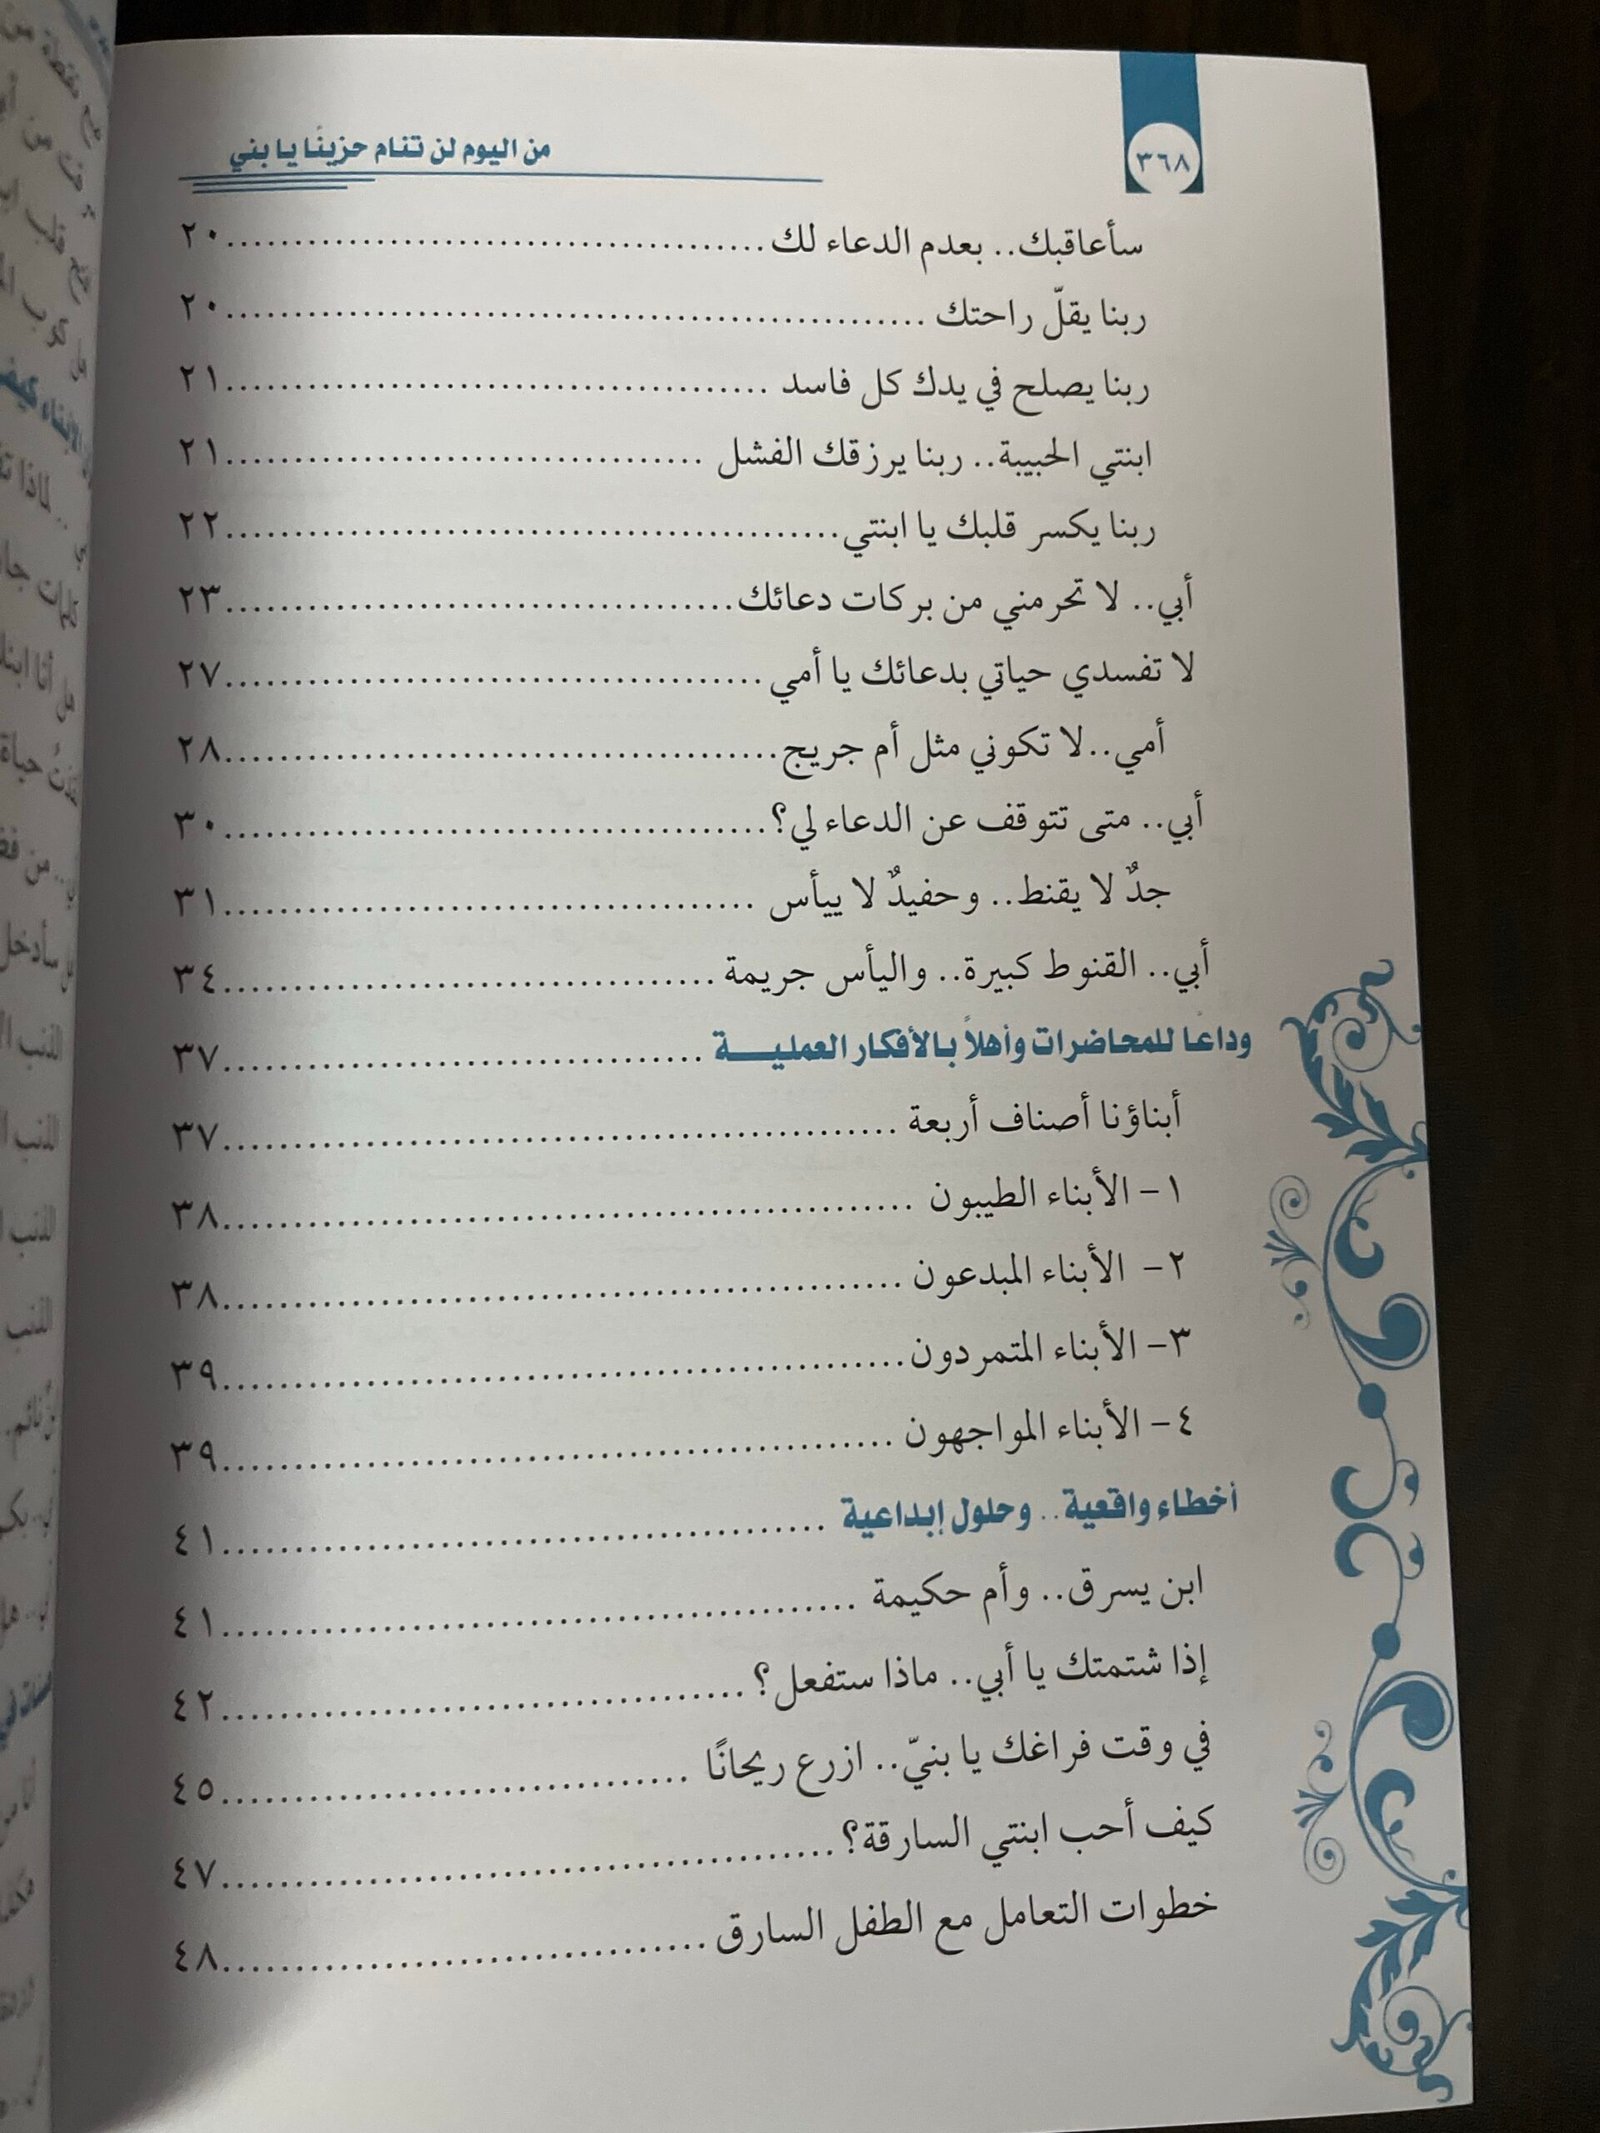 ٣٦٨
من اليوم لن تنام حزينًا يا بني
سأعاقبك.. بعدم الدعاء لك ........ ٢٠
ربنا يقلّ راحتك ........ ٢٠
ربنا يصلح في يدك كل فاسد ........ ٢١
ابنتي الحبيبة.. ربنا يرزقك الفشل ........ ٢١
ربنا يكسر قلبك يا ابنتي ........ ٢٢
أبي.. لا تحرمني من بركات دعائك ........ ٢٣
لا تفسدي حياتي بدعائك يا أمي ........ ٢٧
أمي..لا تكوني مثل أم جريج ........ ٢٨
أبي.. متى تتوقف عن الدعاء لي؟ ........ ٣٠
جدٌ لا يقنط.. وحفيدٌ لا ييأس ........ ٣١
أبي.. القنوط كبيرة.. واليأس جريمة ........ ٣٤
وداعًا للمحاضرات وأهلاً بالأفكار العمليــــة ........ ٣٧
أبناؤنا أصناف أربعة ........ ٣٧
١- الأبناء الطيبون ........ ٣٨
٢- الأبناء المبدعون ........ ٣٨
٣- الأبناء المتمردون ........ ٣٩
٤- الأبناء المواجهون ........ ٣٩
أخطاء واقعية.. وحلول إبداعية ........ ٤١
ابن يسرق.. وأم حكيمة ........ ٤١
إذا شتمتك يا أبي.. ماذا ستفعل؟ ........ ٤٢
في وقت فراغك يا بنيّ.. ازرع ريحانًا ........ ٤٥
كيف أحب ابنتي السارقة؟ ........ ٤٧
خطوات التعامل مع الطفل السارق ........ ٤٨